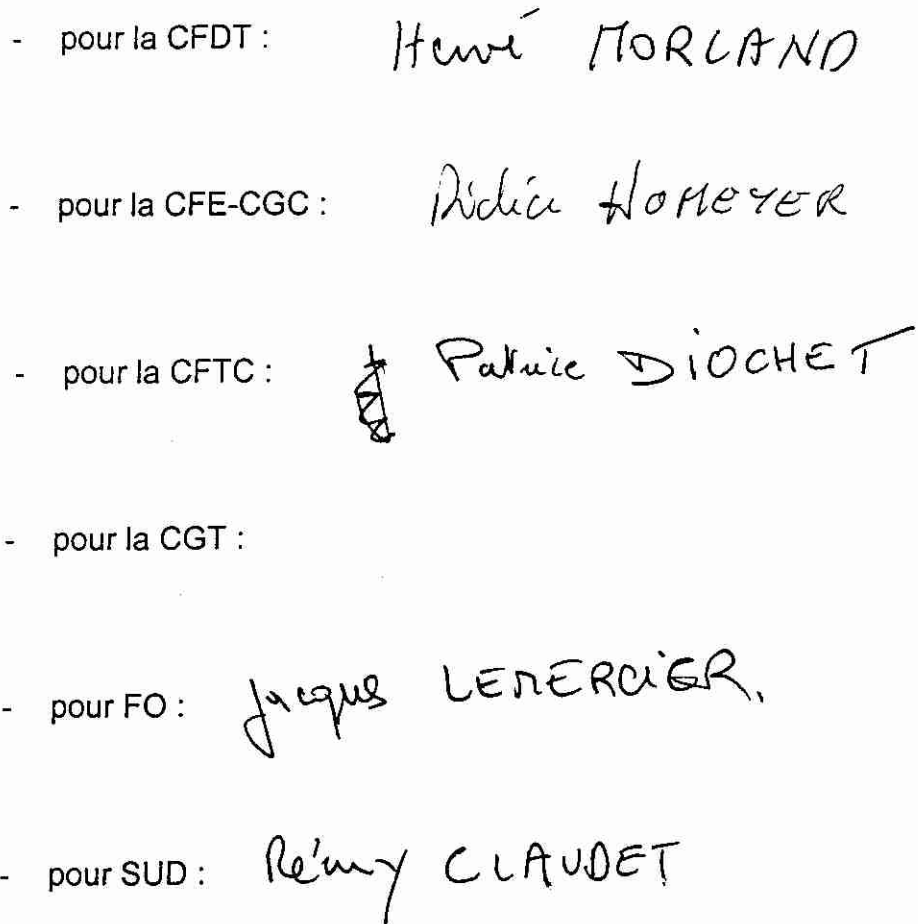 - pour la CFDT : Hervé MORLAND
- pour la CFE-CGC : Didier HOMEYER
- pour la CFTC : Patrice DIOCHET
- pour la CGT :
- pour FO : Jacques LEMERCIER.
- pour SUD : Rémy CLAUDET